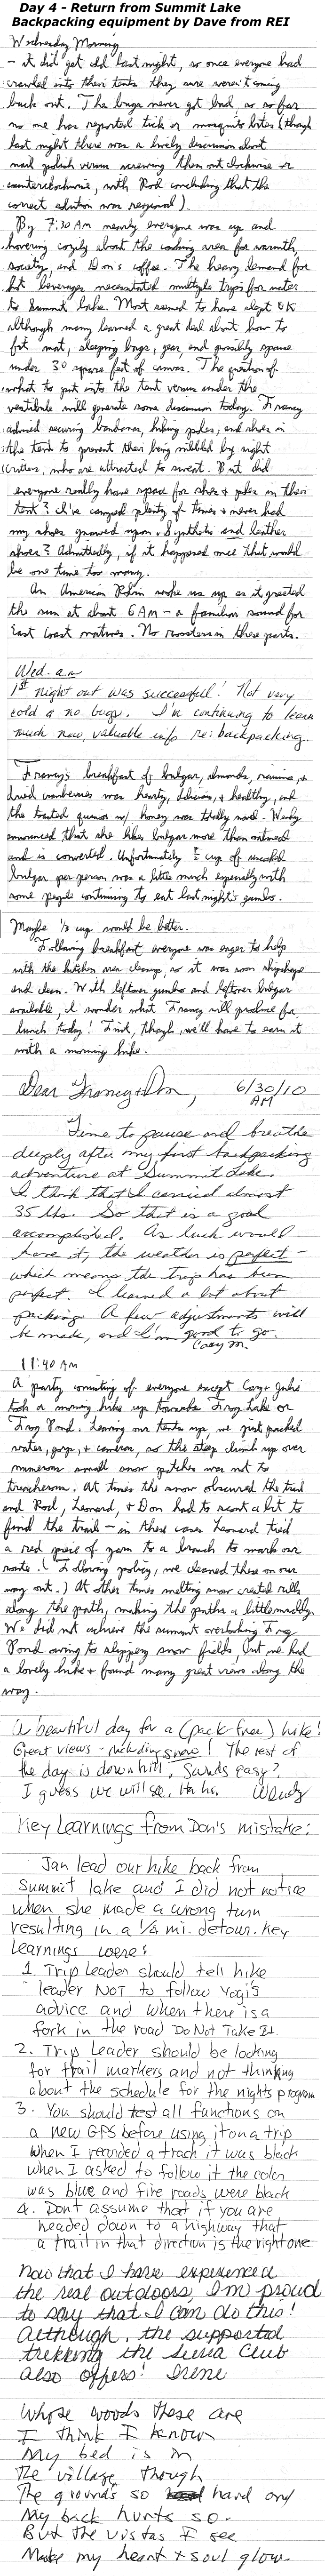 Day 4 - Return from Summit Lake
Backpacking equipment by Dave from REI
Wednesday Morning
- it did get cold last night, so once everyone had
crawled into their tents they sure weren't coming
back out. The bugs never got bad, as so far
no one has reported tick or mosquito bites (though
last night there was a lively discussion about
nail polish versus screwing them out clockwise or
counterclockwise, with Rod concluding that the
correct solution was regional).
By 7:30 AM nearly everyone was up and
hovering cozily about the cooking area for warmth,
society, and Don's coffee. The heavy demand for
hot beverages necessitated multiple trips for water
to Summit Lake. Most seemed to have slept OK
although many learned a great deal about how to
fit mat, sleeping bags, gear, and possibly spouse
under 30 square feet of canvas. The question of
what to put into the tent versus under the
vestibule will generate some discussion today. Francy
advised securing bandanas, hiking poles, and shoes in
the tent to prevent their being nibbled by night
critters, who are attracted to sweat. But did
everyone really have space for shoes & poles in their
tent? I've camped plenty of times & never had
my shoes gnawed upon. Synthetic and leather
shoes? Admittedly, if it happened once that would
be one time too many.
An American Robin woke us up as it greeted
the sun at about 6 AM - a familiar sound for
East Coast natives. No roosters in these parts.
Wed. a.m
1st night out was successful! Not very
cold & no bugs. I'm continuing to learn
much new, valuable info re: backpacking.
Francy's breakfast of bulgar, almonds, raisins, +
dried cranberries was hearty, delicious, + healthy, and
the toasted quinoa w/ honey was totally novel. Wendy
announced that she likes bulgar more than oatmeal
and is converted. Unfortunately ½ cup of uncooked
bulgar per person was a little much especially with
some people continuing to eat last night's gumbo.
Maybe ⅓ cup would be better.
Following breakfast everyone was eager to help
with the kitchen area cleanup, so it was soon shipshape
and clean. With leftover gumbo and leftover bulgar
available, I wonder what Francy will produce for
lunch today! First, though, we'll have to earn it
with a morning hike.
Dear Francy + Don, 6/30/10
AM
Time to pause and breathe
deeply after my first backpacking
adventure at Summit Lake.
I think that I carried almost
35 lbs. So that is a goal
accomplished. As luck would
have it, the weather is perfect -
which means the trip has been
perfect. I learned a lot about
packing. A few adjustments will
be made, and I'm good to go.
Cary M.
11:40 AM
A party consisting of everyone except Cary + Julie
took a morning hike up towards Frog Lake or
Frog Pond. Leaving our tents up, we just packed
water, gorp, + cameras, so the steep climb up over
numerous small snow patches was not to
treacherous. At times the snow obscured the trail
and Rod, Leonard, + Don had to scout a bit to
find the trail - in these cases Leonard tied
a red piece of yarn to a branch to mark our
route. (Following policy, we cleaned these on our
way out.) At other times melting snow created rills
along the path, making the paths a little muddy.
We did not achieve the summit overlooking Frog
Pond owing to slippery snow fields, but we had
a lovely hike + found many great views along the
way.
A beautiful day for a (pack-free) hike!
Great views - including snow! The rest of
the day is downhill. Sounds easy?
I guess we will see. Ha ha. Wendy
Key Learnings from Don's mistake:
Jan lead our hike back from
Summit lake and I did not notice
when she made a wrong turn
resulting in a ¼ mi. detour. Key
Learnings were:
1. Trip Leader should tell hike
leader NOT to follow Yogi's
advice and when there is a
fork in the road Do Not Take It.
2. Trip Leader should be looking
for trail markers and not thinking
about the schedule for the nights program
3. You should test all functions on
a new GPS before using it on a trip
When I recorded a track it was black
when I asked to follow it the color
was blue and fire roads were black
4. Dont assume that if you are
headed down to a highway that
a trail in that direction is the right one
Now that I have experienced
the real outdoors, I'm proud
to say that I can do this!
Although, the supported
trekking the Sierra Club
also offers! Irene
Whose woods these are
I think I know
My bed is in
The village though
The ground's so hard and
My back hurts so.
But the vistas I see
Make my heart + soul glow.